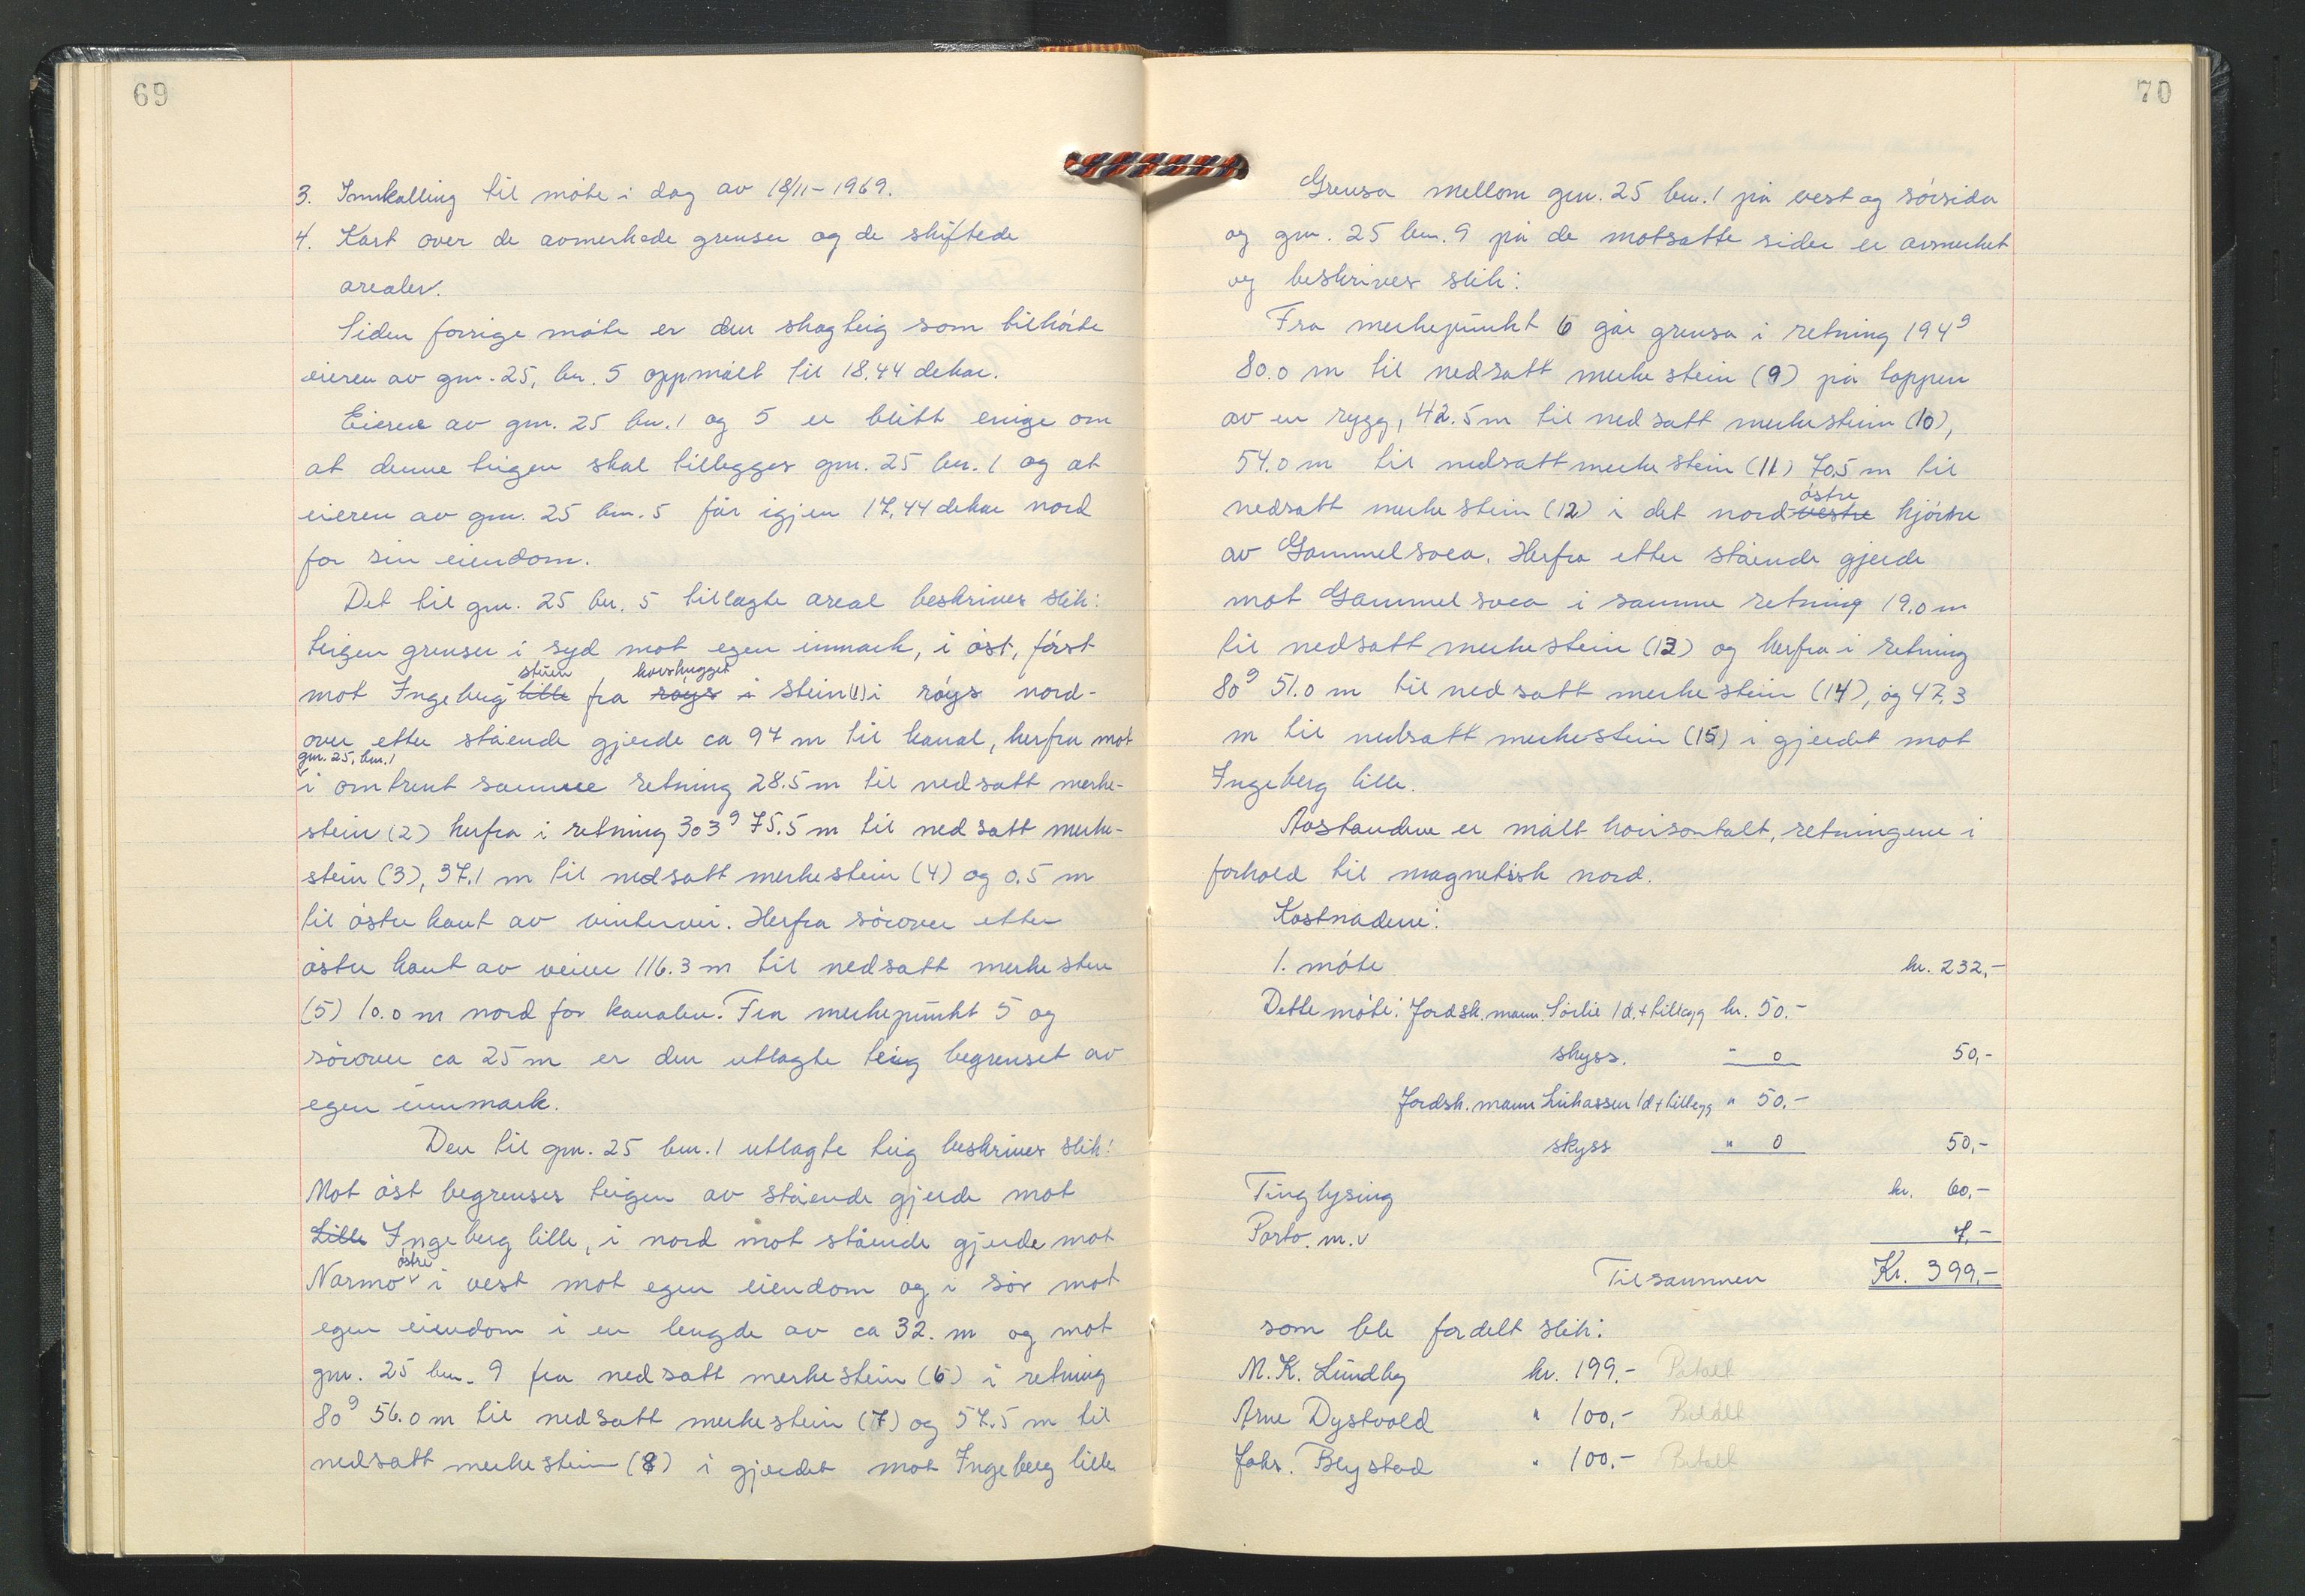 69
3. Innkalling til møte i dag av 18/11-1969.
4. Kart over de avmerkede grenser og de skiftede
arealer.
Siden forrige møte er den skogteig som tilhørte
eieren av gnr. 25, bnr. 5 oppmålt til 18.44 dekar.
Eierne av gnr. 25 bnr. 1 og 5 er blitt enige om
at denne teigen skal tillegges gnr. 25 bnr. 1 og at
eieren av gnr. 25 bnr. 5 får igjen 17,44 dekar nord
for sin eiendom.
Det til gnr. 25 bnr. 5 tillagte areal beskrives slik:
teigen grenser i syd mot egen innmark, i øst, først
stuen korshugget
mot Ingeberg lille fra røys i stein (1) i røys nord-
over etter stående gjerde ca 97 m til kanal, herfra mot
gnr. 25, bnr. 1
i omtrent samme retning 28.5 m til nedsatt merke-
stein (2) herfra i retning 303g 75.5 m til nedsatt merke-
stein (3), 37.1 m til nedsatt merkestein (4) og 0.5 m
til østre kant av vintervei. Herfra sørover etter
østre kant av veien 116.3 m til nedsatt merkesten
(5) 10.0 m nord for kanalen. Fra merkepunkt 5 og
sørover ca 25 m er den utlagte teig begrenset av
egen innmark.
Den til gnr. 25 bnr. 1 utlagte teig beskrives slik:
Mot øst begrenses teigen av stående gjerde mot
Lille Ingeberg lille, i nord mot stående gjerde mot
østre
Narmo v i vest mot egen eiendom og i sør mot
egen eiendom i en lengde av ca 32. m og mot
gnr. 25 bnr. 9 fra nedsatt merkestein (6) i retning
80g 56.0 m til nedsatt merkestein (7) og 57.5 m til
nedsatt merkestein (8) i gjerdet mot Ingeberg lille
70
Grensa mellom gnr. 25 bnr. 1 på vest og sørsida
og gnr. 25 bnr. 9 på de motsatte sider er avmerket
og beskrives slik:
Fra merkepunkt 6 går grensa i retning 194g
80.0 m til nedsatt merkestein (9) på toppen
av en rygg, 42.5 m til nedsatt merkestein (10),
54.0 m til nedsatt merkestein (11) 70.5 m til
østre
nedsatt merkestein (12) i det nordvestre hjørne
av Gammelsvea. Herfra etter stående gjerde
mot Gammelsvea i samme retning 19.0 m
til nedsatt merkestein (13) og herfra i retning
80g 51.0 m til nedsatt merkestein (14), og 47.3
m til nedsatt merkestein (15) i gjerdet mot
Ingeberg lille.
Avstandene er målt horisontalt, retningene i
forhold til magnetisk nord.
Kostnadene:
1. møte kr. 232,-
Dette møte: Jordsk. mann. Sørlie 1 d. + tillegg kr. 50.-
skyss. " 0 50,-
Jordsk. mann Lukassen 1 d + tillegg " 50.-
skyss " 0 50,-
Tinglysing kr. 60,-
Porto. m.v 7,-
Tilsammen Kr. 399,-
som ble fordelt slik:
M. K. Lundby kr. 199.- Betalt
Arne Dystvold " 100,- Betalt
Johs. Blystad " 100,- Betalt